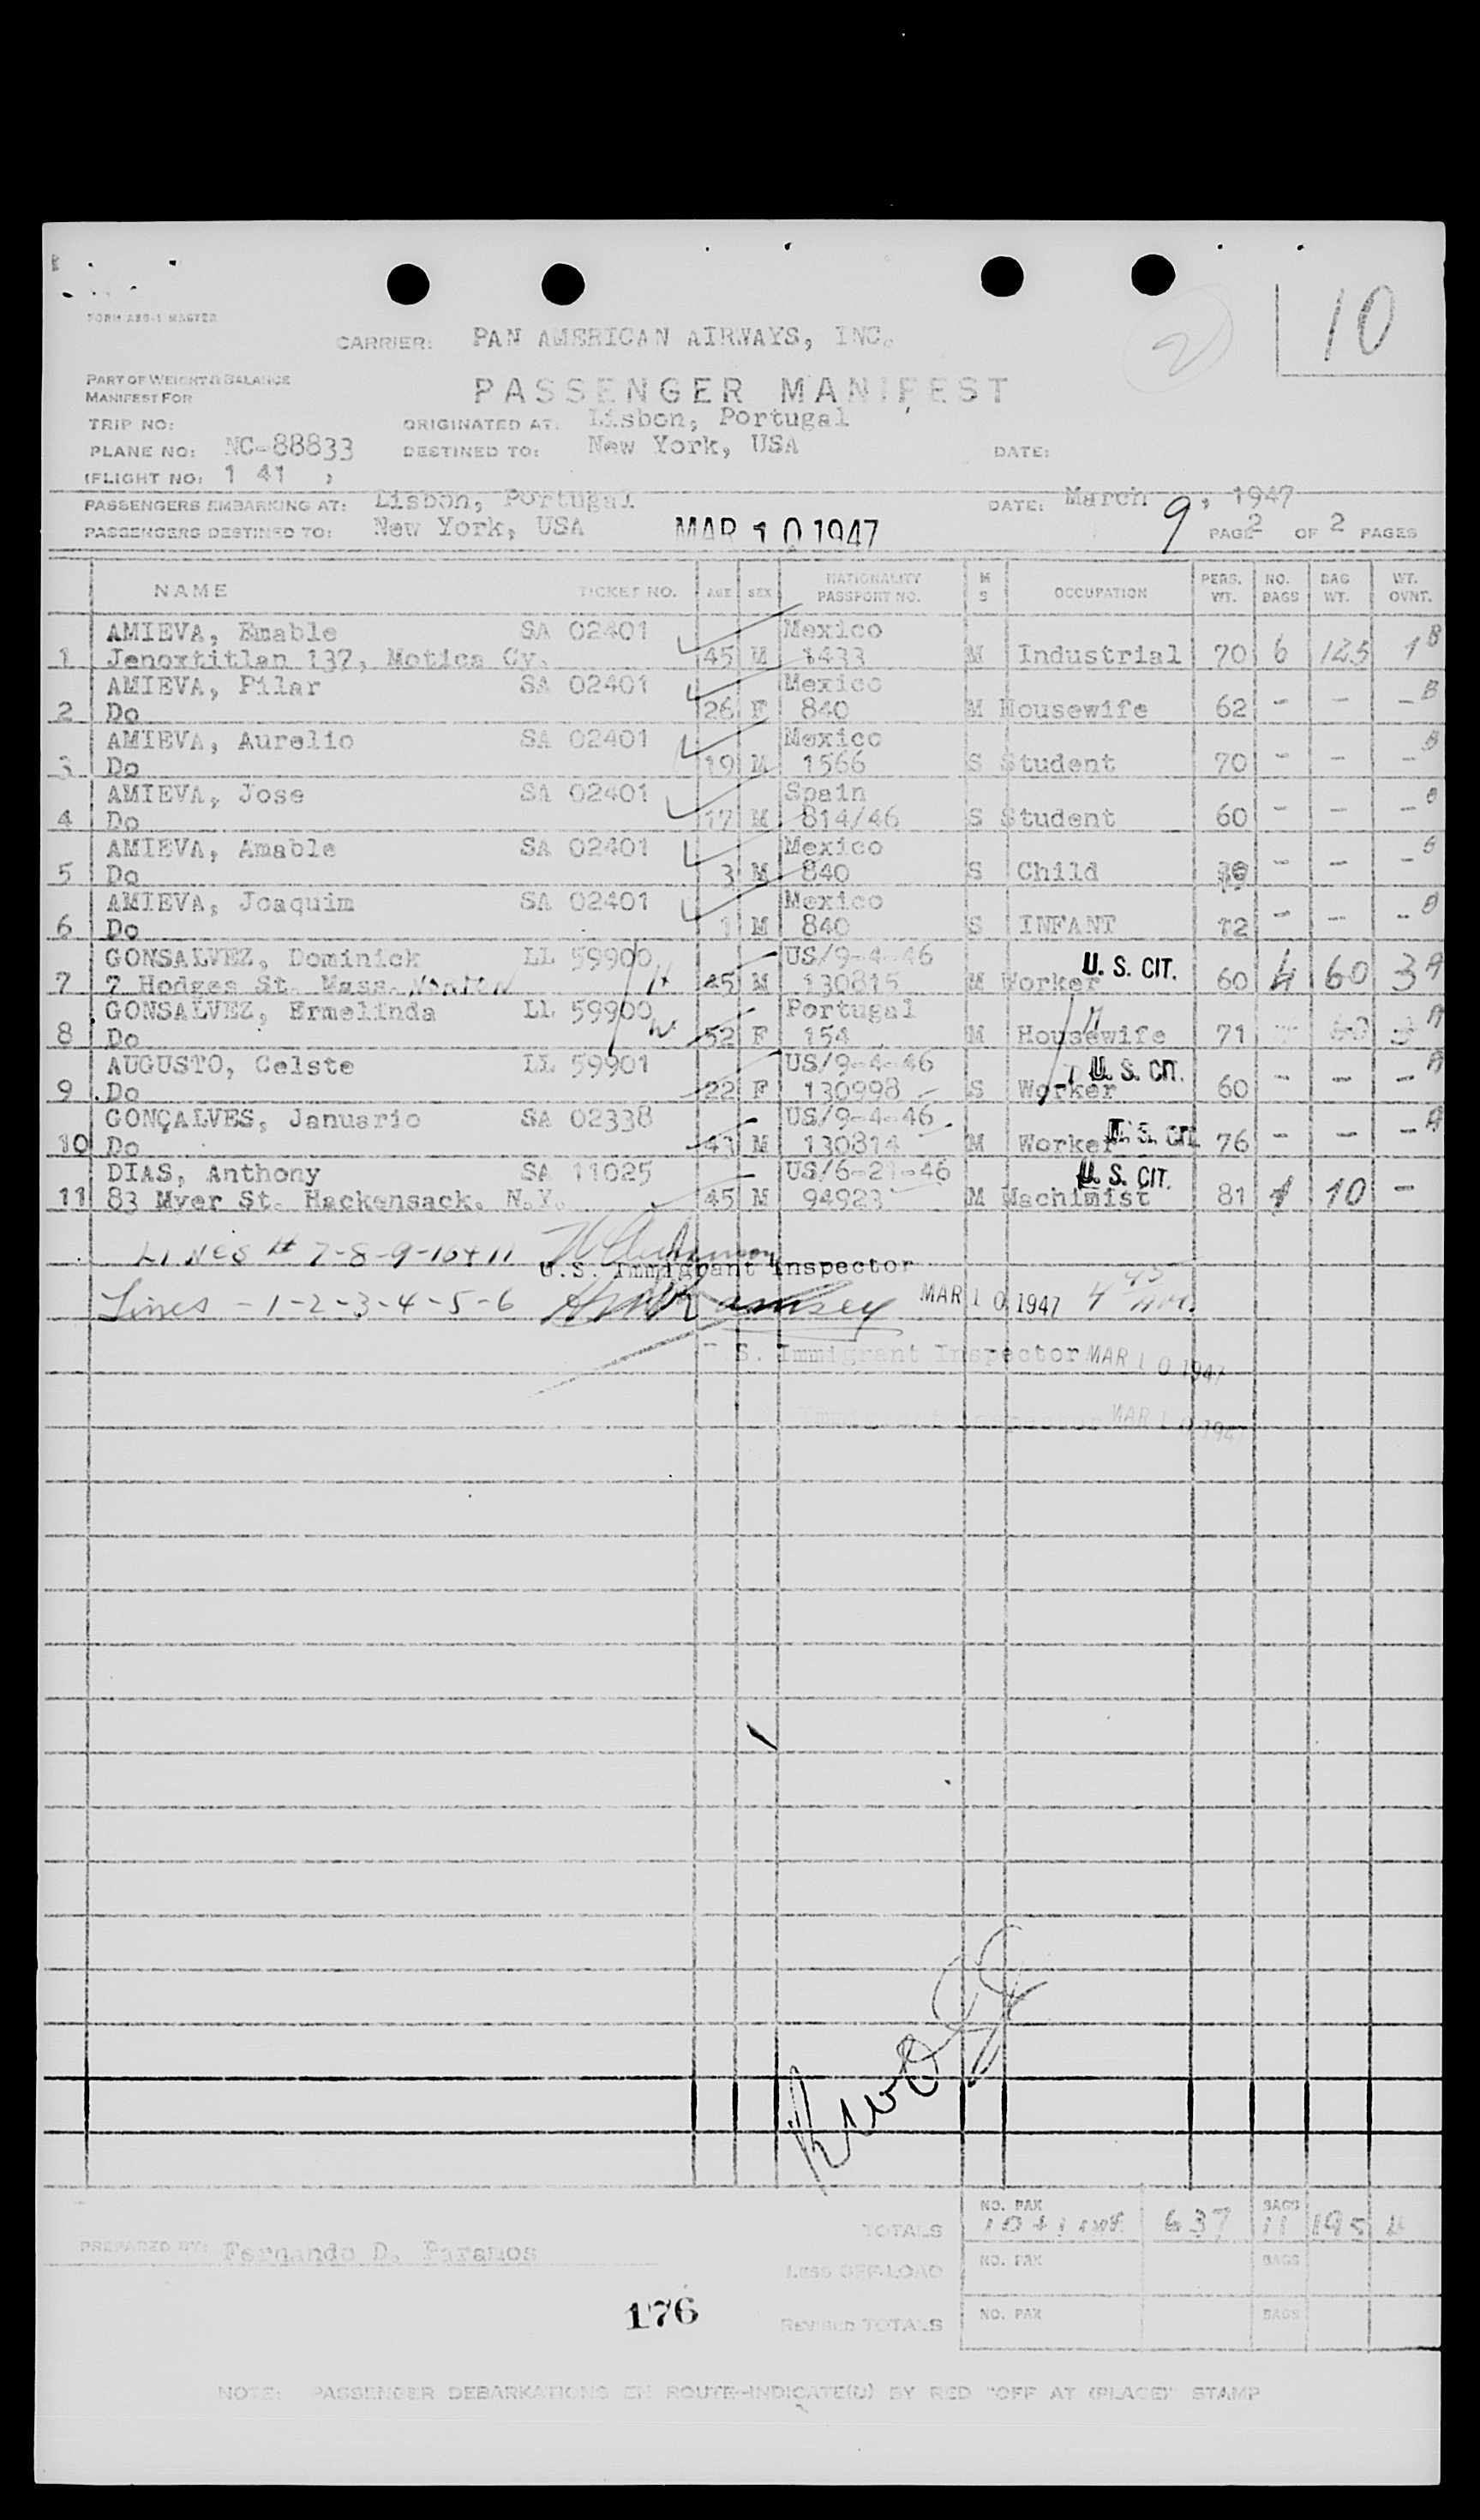 10
2
FORM A89-1 MASTER
CARRIER: PAN AMERICAN AIRWAYS, INC.
PART OF WEIGHT & BALANCE
MANIFEST FOR
PASSENGER MANIFEST
TRIP NO: ORIGINATED AT: Lisbon, Portugal
PLANE NO: NC-88833 DESTINED TO: New York, USA DATE:
(FLIGHT NO: 1 41 )
PASSENGERS EMBARKING AT: Lisbon, Portugal DATE: March 9, 1947
PASSENGERS DESTINED TO: New York, USA MAR 10 1947 PAGE 2 OF 2 PAGES
NAME TICKET NO. AGE SEX NATIONALITY PASSPORT NO. M S OCCUPATION PERS. WT. NO. BAGS BAG WT. WT. OVNT.
AMIEVA, Emable SA 02401 Mexico B
1 Jenoxtitlan 137, Motica Cy. 45 M 1433 M Industrial 70 6 125 1
AMIEVA, Pilar SA 02401 Mexico B
2 Do 26 F 840 M Housewife 62 - - -
AMIEVA, Aurelio SA 02401 Mexico B
3 Do 19 M 1566 S Student 70 - - -
AMIEVA, Jose SA 02401 Spain
4 Do 17 M 814/46 S Student 60 - - -
AMIEVA, Amable SA 02401 Mexico
5 Do 3 M 840 S Child - - -
AMIEVA, Joaquim SA 02401 Mexico B
6 Do 1 M 840 S INFANT 12 - - -
GONSALVEZ, Dominick LL 59900 US/9-4-46 U. S. CIT.
7 7 Hodges St. Mass. 45 M 130815 M Worker 60 4 60 3 A
GONSALVEZ, Ermelinda LL 59900 Portugal A
8 Do 52 F 154 M Housewife 71
AUGUSTO, Celste LL 59901 US/9-4-46 U. S. CIT. A
9 Do 22 F 130998 S Worker 60 - - -
GONÇALVES, Januario SA 02338 US/9-4-46 U. S. CIT. A
10 Do 43 M 130814 M Worker 76 - - -
DIAS, Anthony SA 11025 US/6-21-46 U. S. CIT.
11 83 Myer St. Hackensack. N.Y. 45 M 94923 M Machimist 81 1 10 -
LINES # 7-8-9-10+11
U.S. Immigrant Inspector
Lines - 1-2-3-4-5-6 Ramsey MAR 10 1947 4 45
S. Immigrant Inspector MAR 10 1947
MAR 10 194
TOTALS NO. PAX 10 + 1 inf. 637 BAGS 11 195 4
PREPARED BY: Fernando D. Paramos
LESS OFF-LOAD NO. PAX BAGS
176
REVISED TOTALS NO. PAX BAGS
NOTE: PASSENGER DEBARKATIONS EN ROUTE-INDICATE(D) BY RED "OFF AT (PLACE)" STAMP